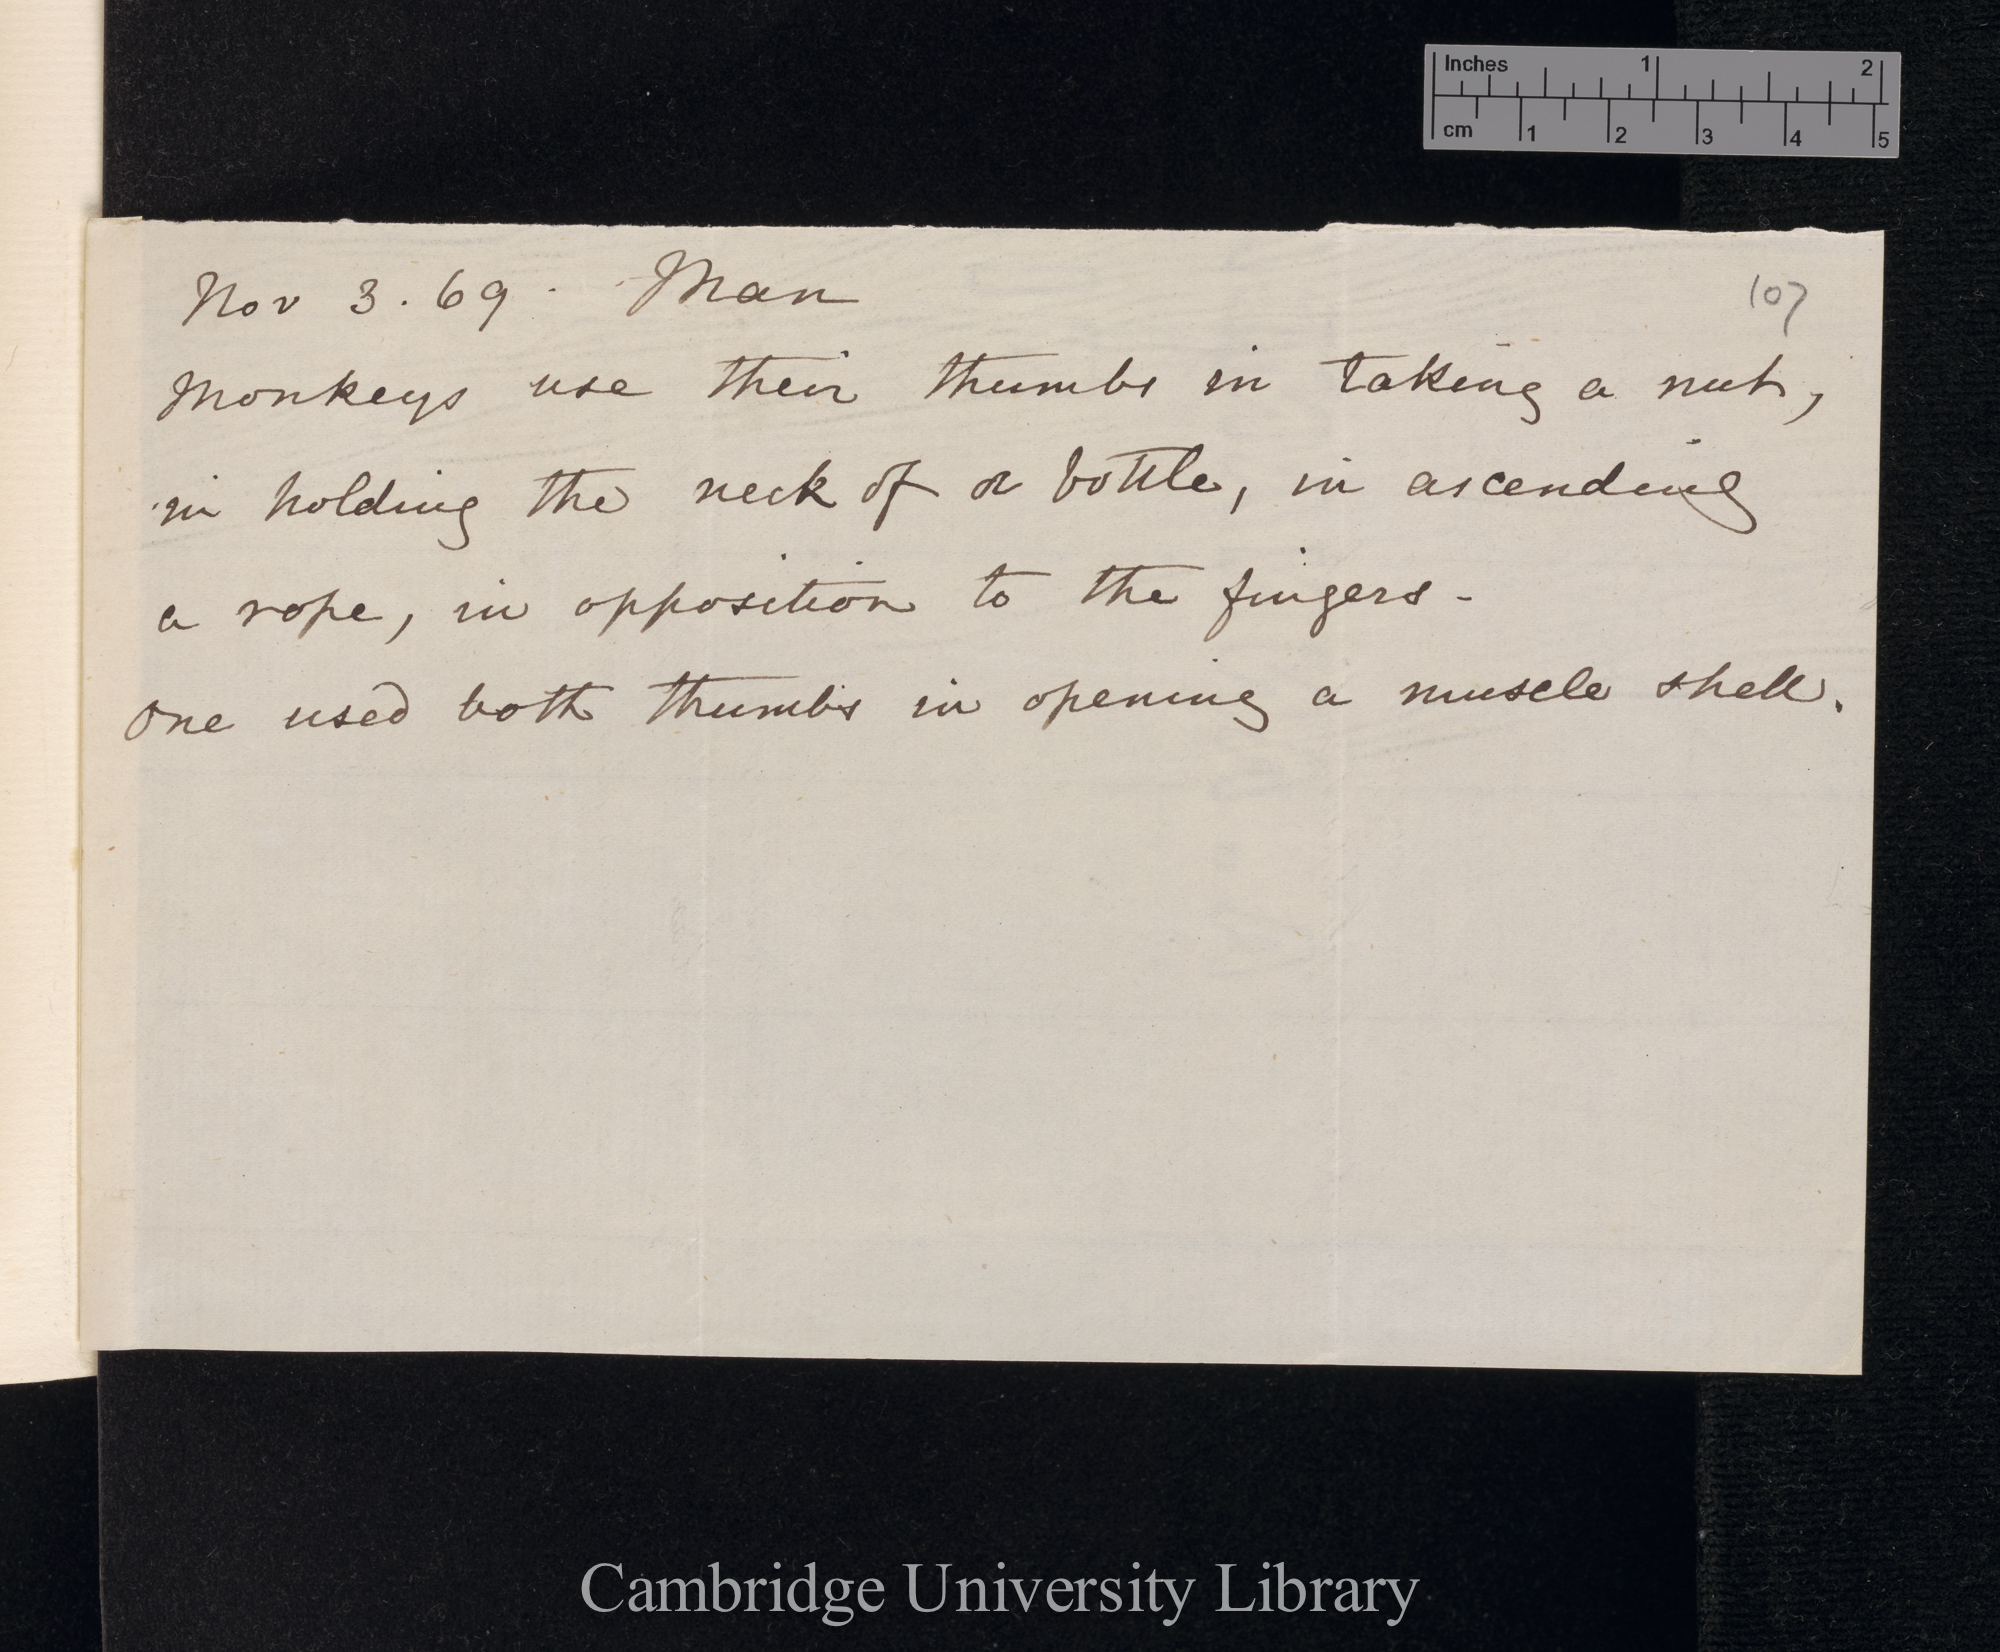 Inches 1 2
cm 1 2 3 4 5
Nov 3. 69. Man 107
Monkeys use their thumbs in taking a nut,
in holding the neck of a bottle, in ascending
a rope, in opposition to the fingers -
One used both thumbs in opening a muscle shell.
Cambridge University Library